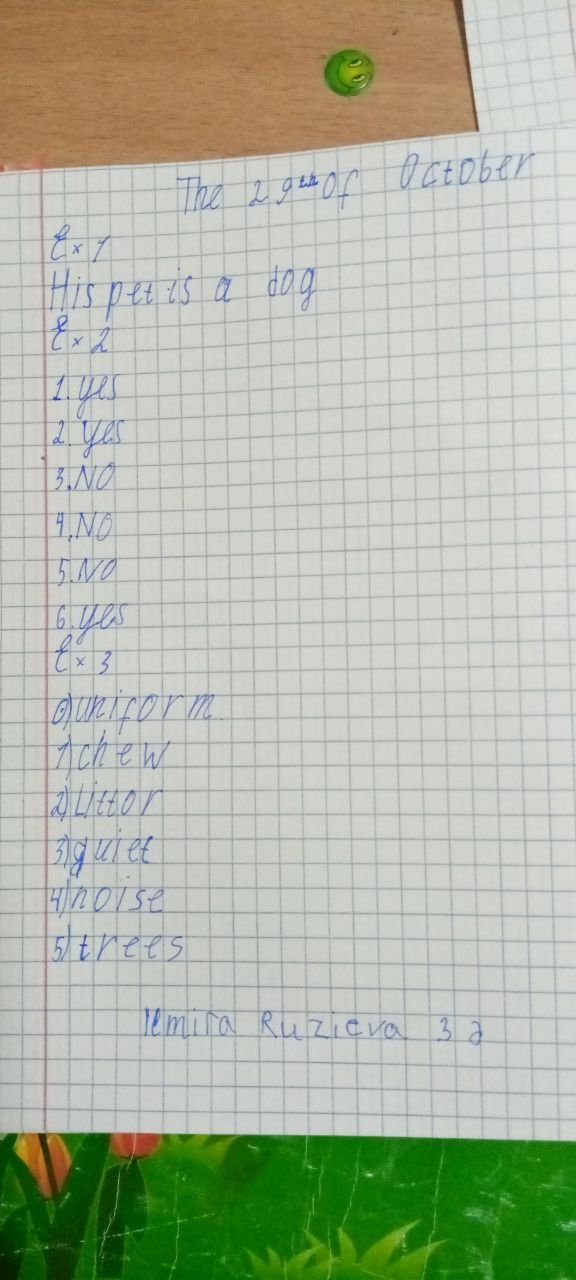 The 29th Of October
Ex 1
His pet is a dog
Ex 2
1. yes
2. yes
3. NO
4. NO
5. NO
6. yes
Ex 3
0) uniform
1) chew
2) Littor
3) quiet
4) noise
5) trees
Ruzieva 3 д